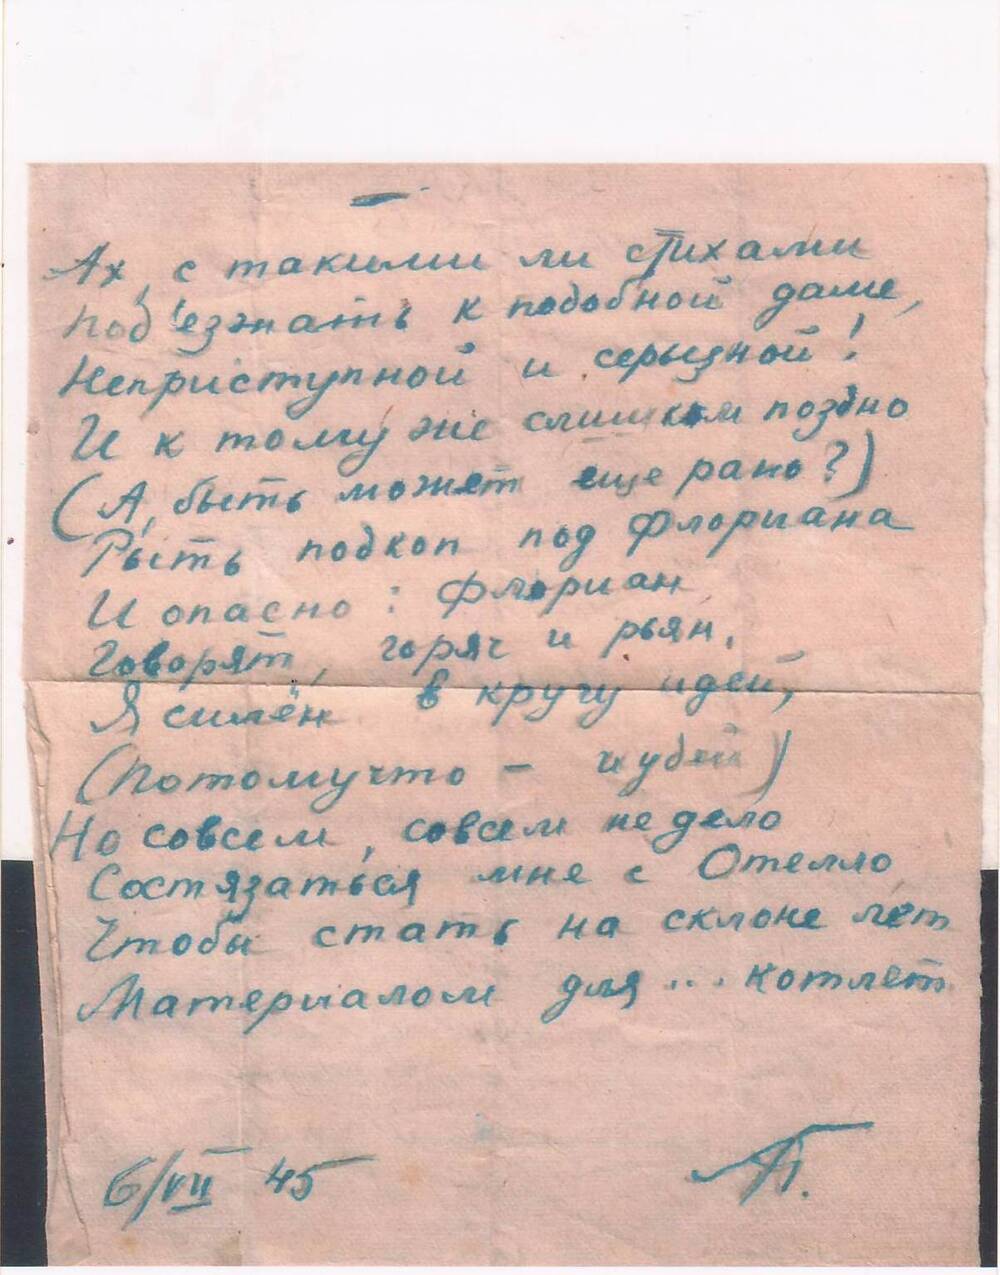 Ах, с такими ли стихами
Под'езжать к подобной даме,
Неприступной и серьезной!
И к тому же слишком поздно
(А, быть может еще рано?)
Рыть подкоп под Флориана
И опасно: Флориан,
Говорят, горяч и рьян.
Я силён в кругу идей,
(Потомучто - иудей)
Но совсем, совсем не дело
Состязаться мне с Отелло
Чтобы стать на склоне лет
Материалом для ... котлет.
6/VII 45